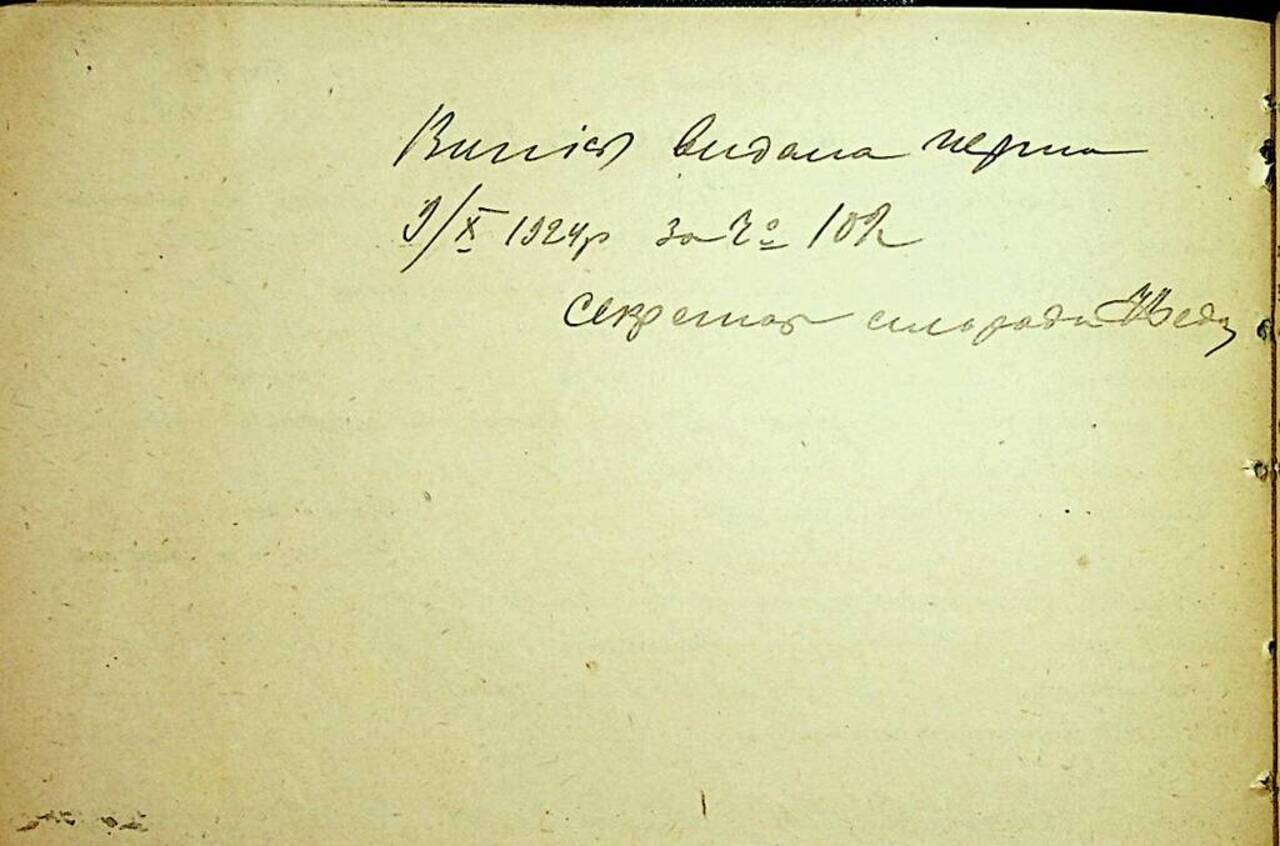 Випісь видана перша
9/X 1924р за № 102
Секретар сільради